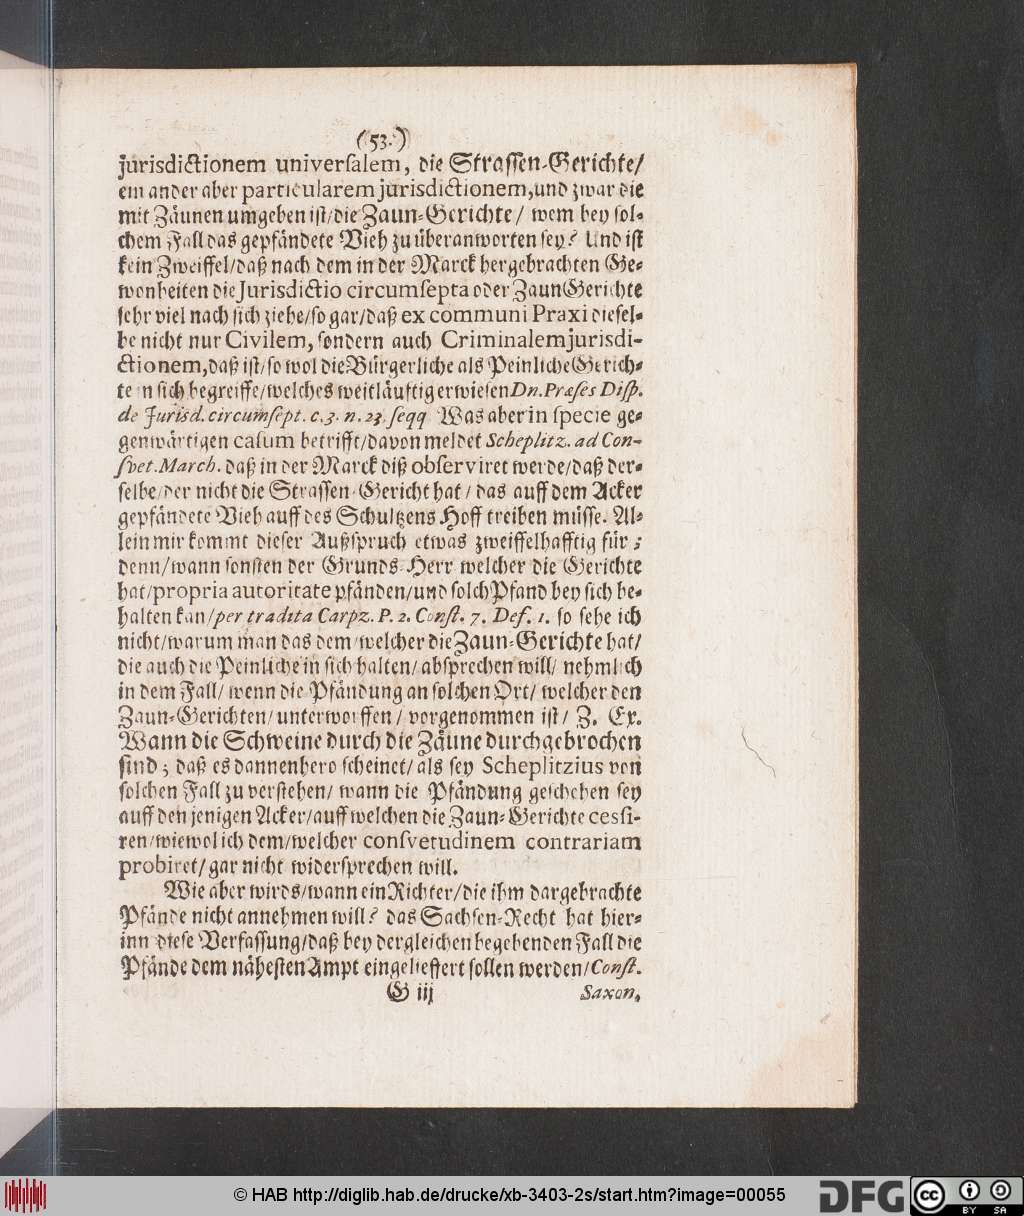 (53.)
jurisdictionem univerſalem, die Straſſen-Gerichte/
ein ander aber particularem jurisdictionem, und zwar die
mit Zäunen umgeben iſt/die Zaun-Gerichte/ wem bey ſol-
chem Fall das gepfändete Vieh zu überantworten ſey? Und iſt
kein Zweiffel/daß nach dem in der Marck hergebrachten Ge-
wonheiten die Jurisdictio circumſepta oder Zaun Gerichte
ſehr viel nach ſich ziehe/ſo gar/daß ex communi Praxi dieſel-
be nicht nur Civilem, ſondern auch Criminalem jurisdi-
ctionem, daß iſt/ſo wol die Bürgerliche als Peinliche Gerich-
te in ſich begreiffe/welches weitläuftig erwieſen Dn. Præſes Diſp.
de Jurisd. circumſept. c. 3. n. 23. ſeqq Was aber in ſpecie ge-
genwärtigen caſum betrifft/davon meldet Scheplitz. ad Con-
ſvet. March. daß in der Marck diß obſerviret werde/daß der-
ſelbe/der nicht die Straſſen-Gericht hat/ das auff dem Acker
gepfändete Vieh auff des Schultzens Hoff treiben müſſe. Al-
lein mir kommt dieſer Außſpruch etwas zweiffelhafftig für;
denn/wann ſonſten der Grunds-Herr welcher die Gerichte
hat/propria autoritate pfänden/und ſolch Pfand bey ſich be-
halten kan/per tradita Carpz. P. 2. Conſt. 7. Def. 1. ſo ſehe ich
nicht/warum man das dem/welcher die Zaun-Gerichte hat/
die auch die Peinliche in ſich halten/ abſprechen will/ nehmlich
in dem Fall/ wenn die Pfändung an ſolchen Ort/ welcher den
Zaun-Gerichten/unterworffen/ vorgenommen iſt/ Z. Ex.
Wann die Schweine durch die Zäune durchgebrochen
ſind; daß es dannenhero ſcheinet/ als ſey Scheplitzius von
ſolchen Fall zu verſtehen/ wann die Pfändung geſchehen ſey
auff den jenigen Acker/auff welchen die Zaun-Gerichte cessi-
ren/wiewol ich dem/welcher conſvetudinem contrariam
probiret/gar nicht widerſprechen will.
Wie aber wirds/wann ein Richter/die ihm dargebrachte
Pfände nicht annehmen will? das Sachſen-Recht hat hier-
inn dieſe Verfaſſung/daß bey dergleichen begebenden Fall die
Pfände dem näheſten Ampt eingelieffert ſollen werden/Conſt.
G iij Saxon.
© HAB http://diglib.hab.de/drucke/xb-3403-2s/start.htm?image=00055
DFG
cc
BY SA